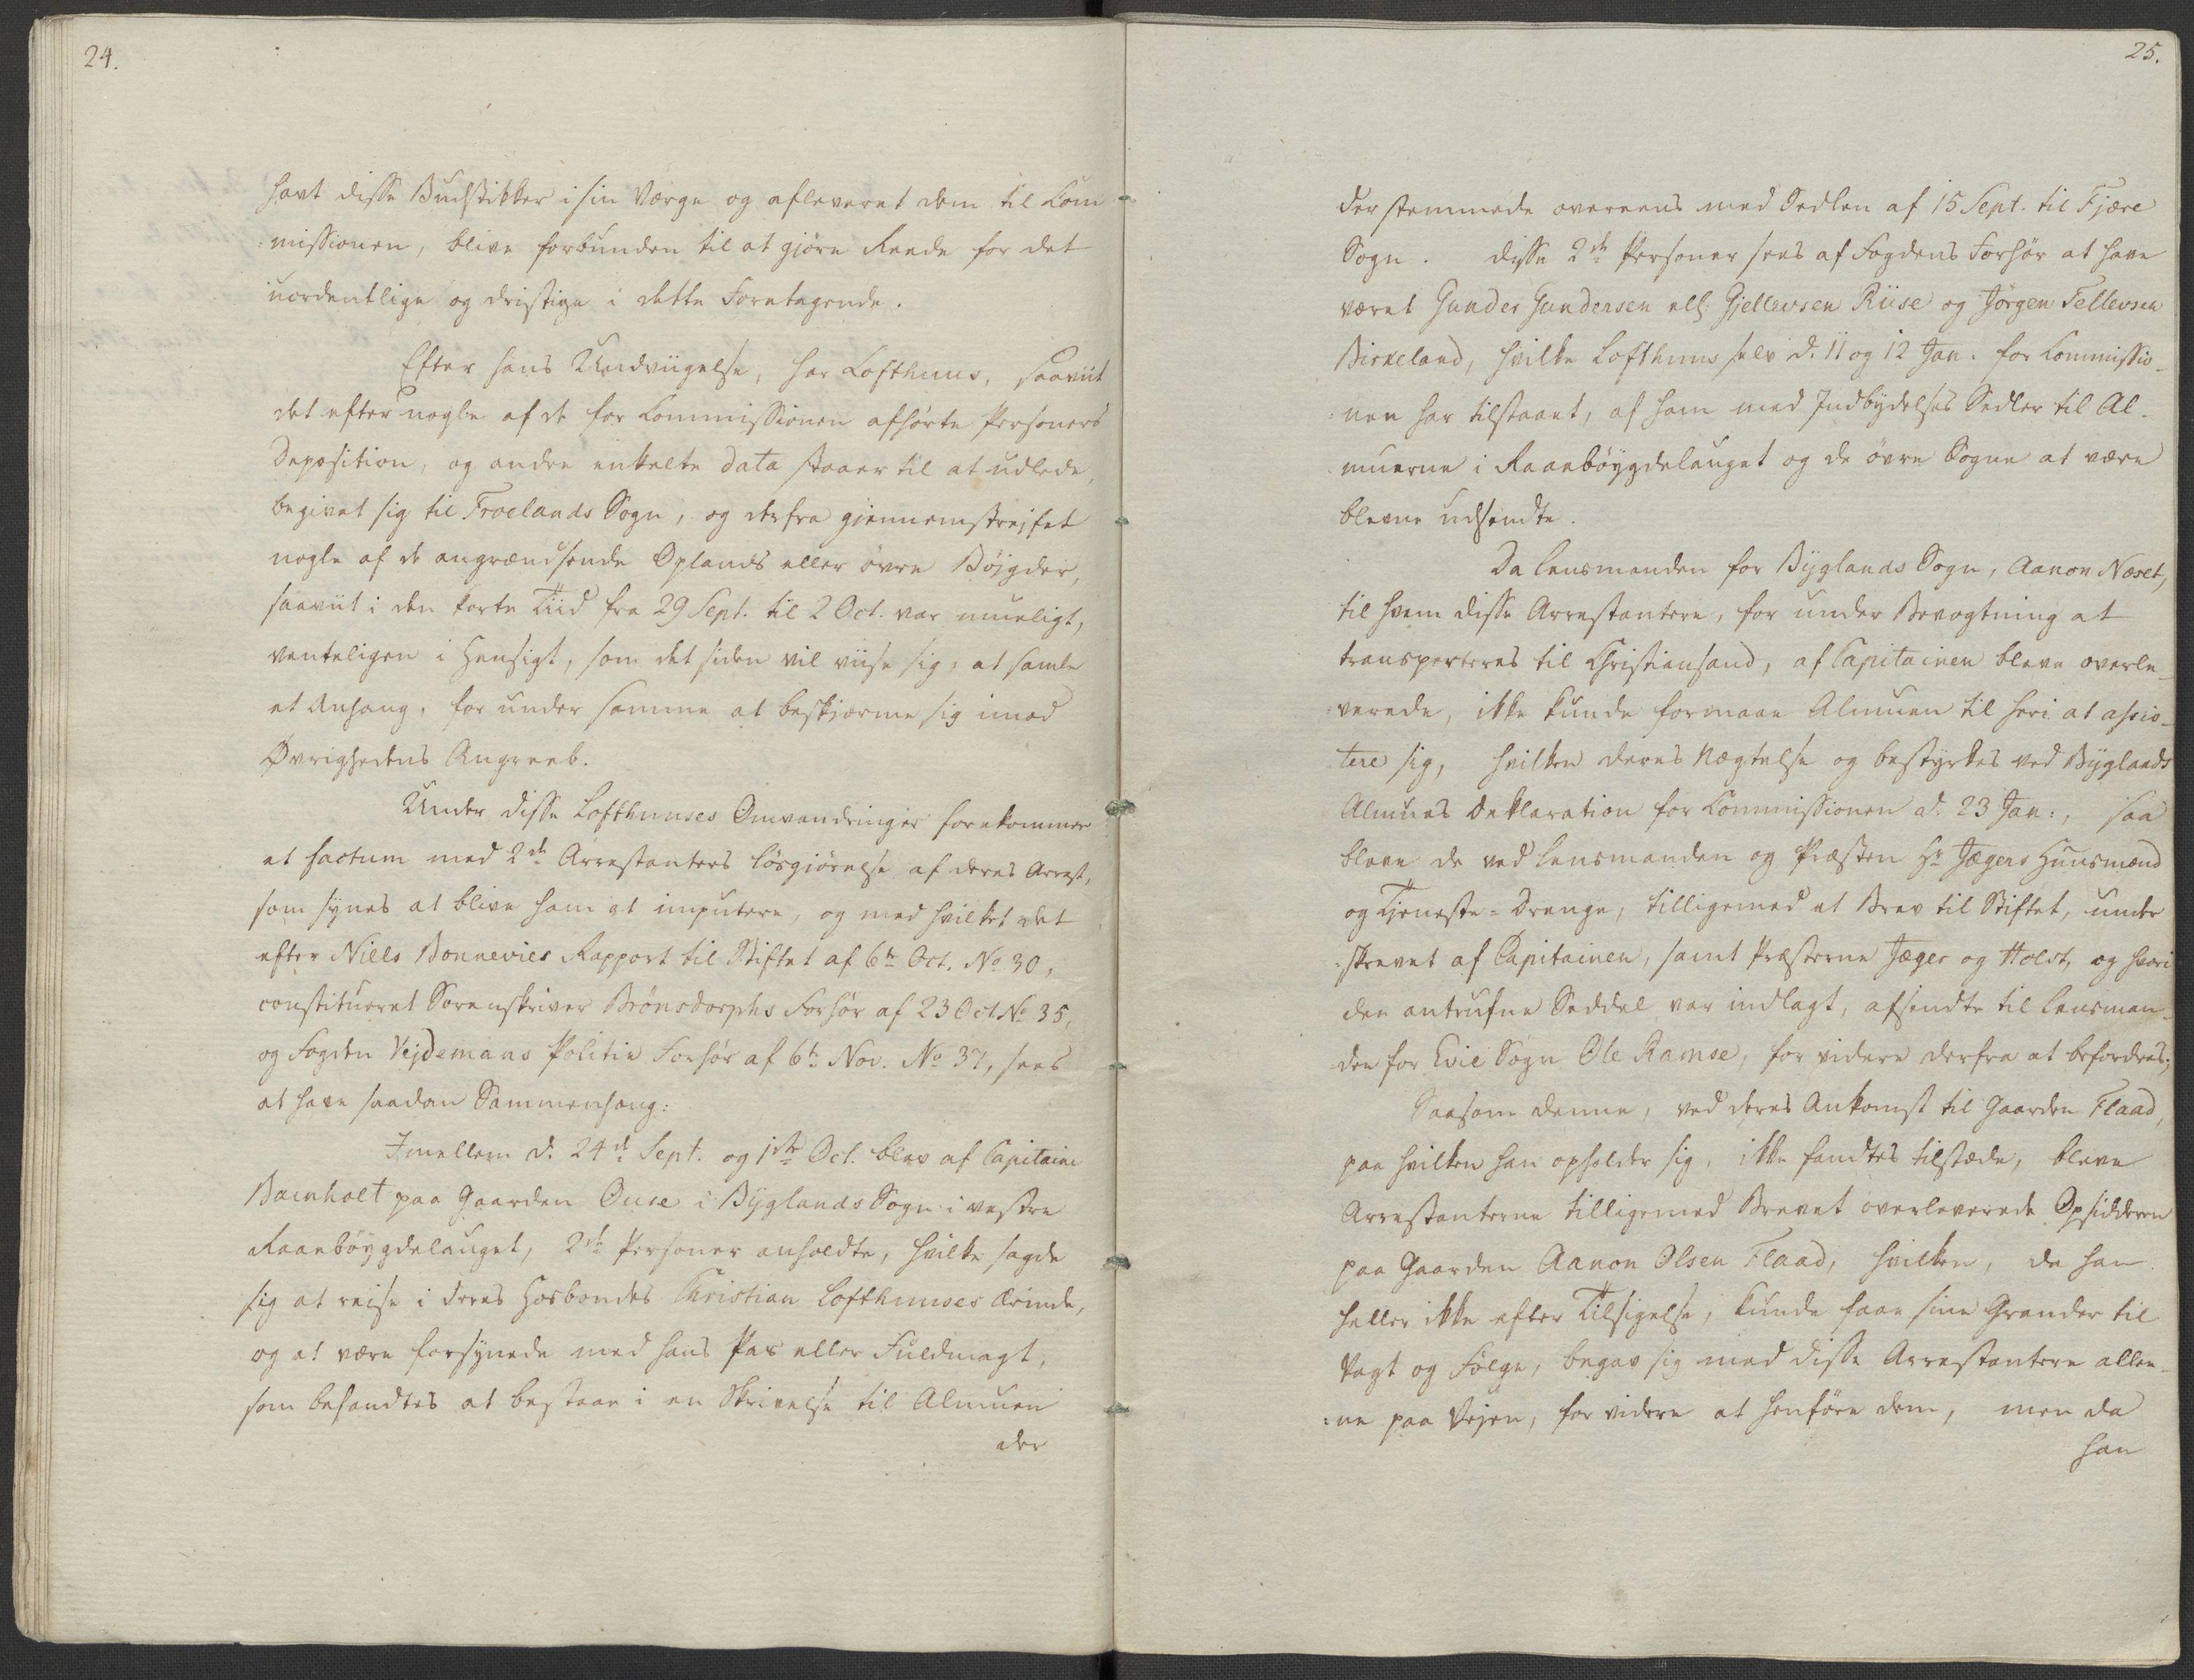 24.
havt disse Budstikker i sin Værge og afleveret dem til Com
:missionen, blive forbunden til at gjöre Reede for det
uordentlige og dristige i dette Foretagende.
Efter hans Undviigelse, har Lofthuus, saaviit
det efter nogle af de for Commissionen afhörte Personers
Deposition, og andre enkelte Data staaer til at udlede,
begivet sig til Froelands Sogn, og derfra gjennemstrejfet
nogle af de angrændsende Oplands eller övre Böjgder,
saaviit i den korte Tiid fra 29 Sept. til 2 Oct. var mueligt,
venteligen i Hensigt, som det siden vil viise sig, at samle
et Anhang, for under samme at beskjærme sig imod
Øvrighedens Angreeb.
Under disse Lofthuuses Omvandringer forekommer
et factum med 2de Arrestanters lösgjörelse af deres Arrest,
som synes at blive ham at imputere, og med hvilket det
efter Niels Bonnevies Rapport til Stiftet af 6te Oct. No 30,
constitueret Sorenskriver Brönsdorphs Forhör af 23 Oct No 35,
og Fogden Vejdemans Politie Forhör af 6te Nov. No 37, sees
at have saadan Sammenhæng:
Imellem d. 24de Sept. og 1ste Oct. blev af Capitaine
Barnholt paa Gaarden Ouse i Byglands Sogn i vestre
Raabböygdelauget, 2de Personer anholdte, hvilke sagde
sig at reise i deres Hosbondes Christian Lofthuuses Ærinde,
og at være forsynede med hans Pas eller Fuldmagt,
som befandtes at bestaae i en Skrivelse til Almuen
der
25.
der stemmede overeens med Sedlen af 15 Sept. til Fjære
Sogn. Disse 2de Personer sees af Fogdens Forhör at have
været Gunder Gundersen ell: Gjellevsen Riise og Jörgen Tellevsen
Birkeland, hvilke Lofthuus selv d. 11 og 12 Jan. for Commissio-
:nen har tilstaaet, af ham med Indbydelses Sedler til Al-
muerne i Raabböygdelauget og de övre Sogne at være
blevne udsendte.
Da Lensmanden for Byglands Sogn, Aanon Næset,
til hvem disse Arrestantere, for under Bevogtning at
transporteres til Christiansand, af Capitainen bleve overle-
:verede, ikke kunde formaae Almuen til heri at assis-
tere sig, hvilken deres Nægtelse og bestyrkes ved Byglands
Almues Deklaration for Commissionen d. 23 Jan:, saa
bleve de ved Lensmanden og Præsten Hr Jægers Huusmænd
og Tjeneste-Drenge, tilligemed et Brev til Stiftet, under
:skrevet af Capitainen, samt Præsterne Jæger og Holst, og hvori
den antrufne Seddel var indlagt, afsendte til Lensman-
den for Evie Sogn Ole Ramse, for videre derfra at befordres;
Saasom denne, ved deres Ankomst til Gaarden Flaad,
paa hvilken han opholder sig, ikke fandtes tilstæde, bleve
Arrestanterne tilligemed Brevet overleverede Opsidderen
paa Gaarden Aanon Olsen Flaad, hvilken, da han
heller ikke efter Tilsigelse, kunde faae sine Grander til
Vagt og Fölge, begav sig med disse Arrestantere allee-
:ne paa Vejen, for videre at henföre dem, men da
han